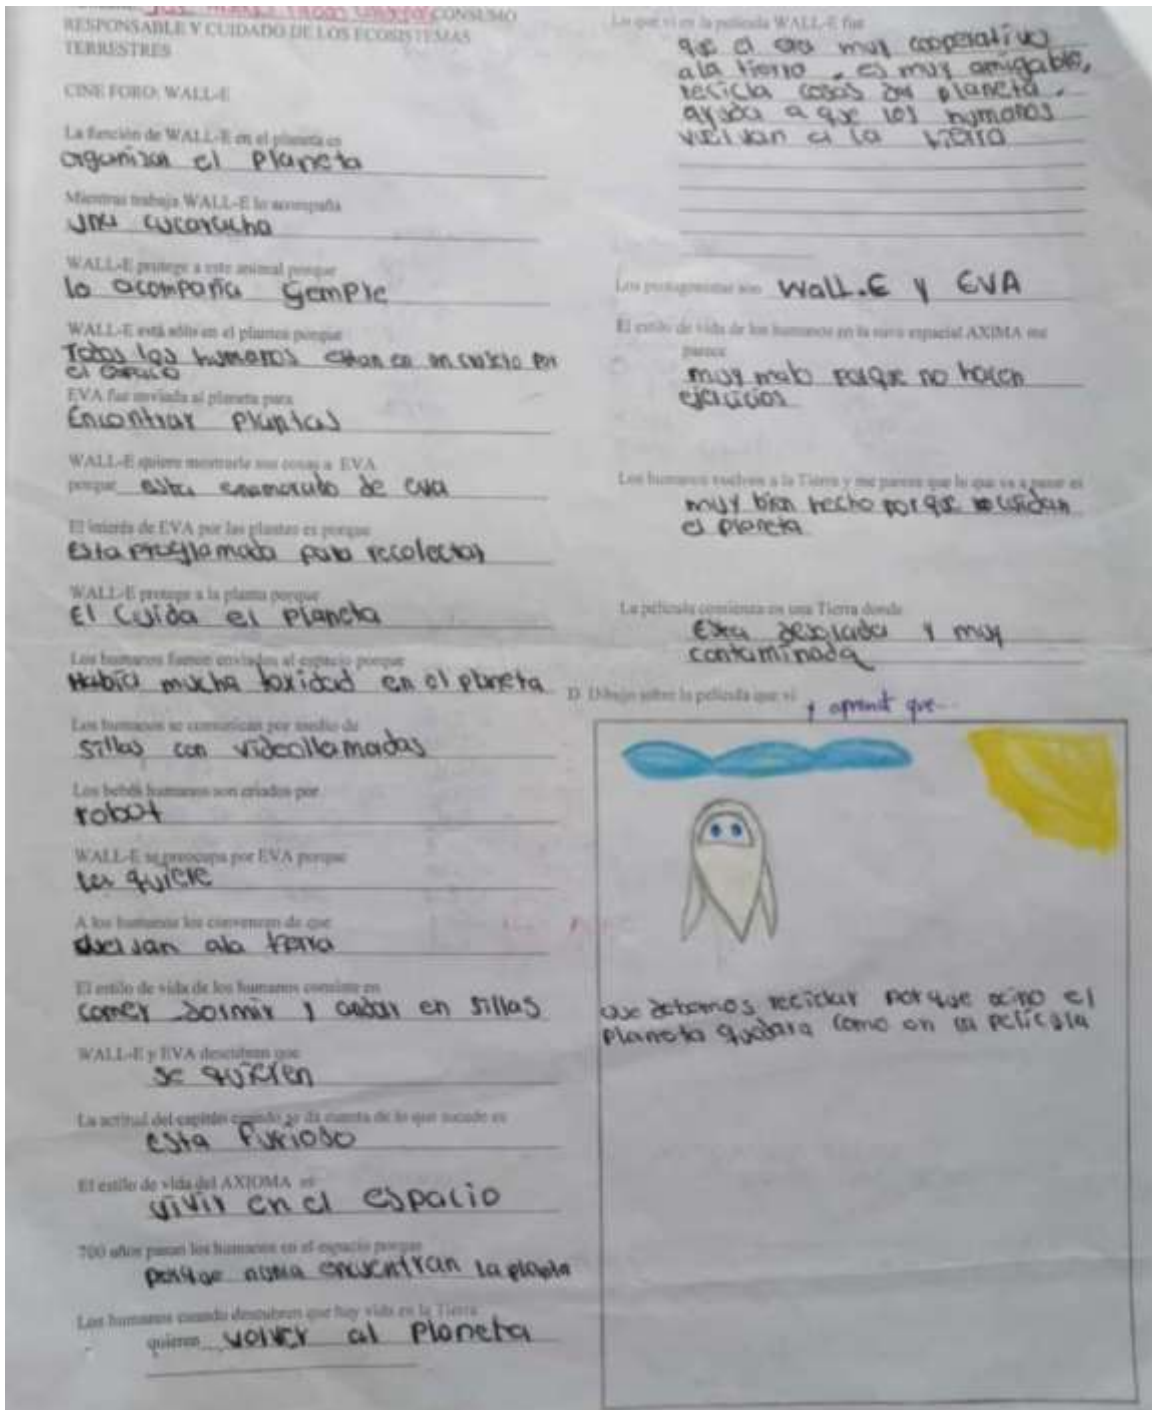 CONSUMO
RESPONSABLE Y CUIDADO DE LOS ECOSISTEMAS
TERRESTRES
CINE FORO: WALL-E
La función de WALL-E en el planeta es
organizar el planeta
Mientras trabaja WALL-E lo acompaña
una cucaracha
WALL-E protege a este animal porque
lo acompaña siemple
WALL-E está sólo en el planeta porque
Todos los humanos estan en un crusero por
el espacio
EVA fue enviada al planeta para
Encontrar plantas
WALL-E quiere mostrarle sus cosas a EVA
porque esta enamorado de eva
El interés de EVA por las plantas es porque
Esta programada para recolectar
WALL-E protege a la planta porque
El Cuida el planeta
Los humanos fueron enviados al espacio porque
Había mucha toxidad en el planeta
Los humanos se comunican por medio de
sillas con videollamadas
Los bebés humanos son criados por
robot
WALL-E se preocupa por EVA porque
la quiere
A los humanos los convencen de que
vuelvan ala tierra
El estilo de vida de los humanos consiste en
comer dormir y andar en sillas
WALL-E y EVA descubren que
se quieren
La actitud del capitán cuando se da cuenta de lo que sucede es
esta furioso
El estilo de vida del AXIOMA es
vivir en el espacio
700 años pasan los humanos en el espacio porque
porque nunca encuentran la planta
Los humanos cuando descubren que hay vida en la Tierra
quieren volver al planeta
Lo que vi en la película WALL-E fue
que el era muy cooperativo
ala tierra, es muy amigable,
recicla cosas del planeta,
ayuda a que los humanos
vuelvan a la tierra
Los protagonistas son Wall.E y EVA
El estilo de vida de los humanos en la nave espacial AXIMA me
parece
muy malo porque no hacen
ejercicios
Los humanos vuelven a la Tierra y me parece que lo que va a pasar es
muy bien hecho porque cuidan
el planeta
La película comienza en una Tierra donde
Esta desolada y muy
contaminada
D. Dibujo sobre la película que vi y aprendí que...
que debemos reciclar porque ocino el
planeta quedara como en la película